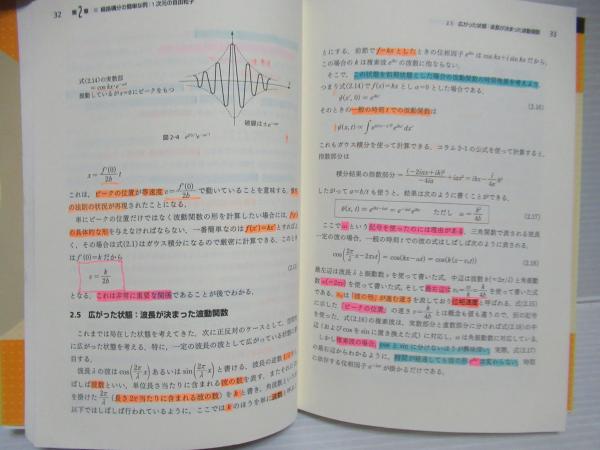 32 第2章 ※ 経路積分の簡単な例:1次元の自由粒子
式(2.14)の実数部
= cos kx·e^{-x²}
振動しているがx=0にピークをもつ
破線は±e^{-x²}
図2-4
x = f'(0)/2b t
これは、ピークの位置が等速度 v = f'(0)/2b で動いていることを意味する。
の法則の状況が再現されたことになる。
単にピークの位置だけではなく波動関数の形を計算したい場合には、
の具体的な形を与えなければならない。一番簡単なのは f(x)=kx とすれば
く、その場合は式(2.1)はガウス積分になるので厳密に計算できる。このとき
は f'(0)=k だから
v = k/2b
となる。これは非常に重要な関係であることが後でわかる。
2.5 広がった状態:波長が決まった波動関数
これまでは局在した状態を考えてきた。次に正反対のケースとして、空間的
に広がった状態を考える。特に、一定の波長の波として広がっている状態に
目する。
波長λの波は cos(2π/λ x) あるいは sin(2π/λ x) と書ける。波長の逆数
ばしば波数といい、単位長さ当たりに含まれる波の数を表す。またそれに
を掛けた 2π/λ (長さ2π当たりに含まれる波の数) を k と書き、角波数という
以下ではしばしば行われているように、ここでは k のほうを単に波数と
2.5 広がった状態:波長が決まった波動関数 33
とにする。前節で f=kx としたときの位相因子 e^{ikx} は cos kx + i sin kx だから、
この場合の k は複素波 e^{ikx} の波数に他ならない。
そこで、この状態を初期状態とした場合の波動関数の時間発展を考えよう。
つまり式(2.14)で f(x)=kx とし a=0 とした場合である。
ψ(x', 0) = e^{ikx'} (2.16)
そのときの一般の時刻 t での波動関数は
これもガウス積分を使って計算できる。コラム2-1の公式を使って計算すると、
指数部分は
積分結果の指数部分 =
したがって a=b/t も使うと、結果は次のように書くことができる。
ψ(x, t) = e^{ikx-iωt} = e^{-iωt}e^{ikx} ただし ω = k²/4b (2.17)
ここで ω という記号を使ったのには理由がある。三角関数で表される波長
一定の波の場合、一般の時刻 t での波の式はしばしば次のように表される。
cos(2π/λ x − 2πνt) = cos(kx−ωt) = cos(k(x−v_p t))
最左辺は波長λと振動数νを使って書いた式、中辺は波数 k(=2π/λ) と角振動
数 ω(=2πν) を使って書いた式、そして最右辺は v_p = ω/k = k/4b を使って書いた式
である。v_p は「波の形」が進む速さを表しており位相速度と呼ばれる。式(2.15)
に示した「ピークの位置」の速さ v = k/2b とは概念も値も違うので、別の記号
を使った。式(2.16)の複素波は、実数部分と虚数部分に分ければ式(2.18)の中
辺(およびcosをsinに置き換えた式)に対応し、ωは角振動数に対応している。
しかし複素波の場合、cosとsinに分けないほうが簡単である。実際、式(2.17)
の最右辺からわかるように、時間が経過しても波の形 e^{ikx} は変わらない。時間
に依存する位相因子 e^{-iωt} が掛かるだけである。